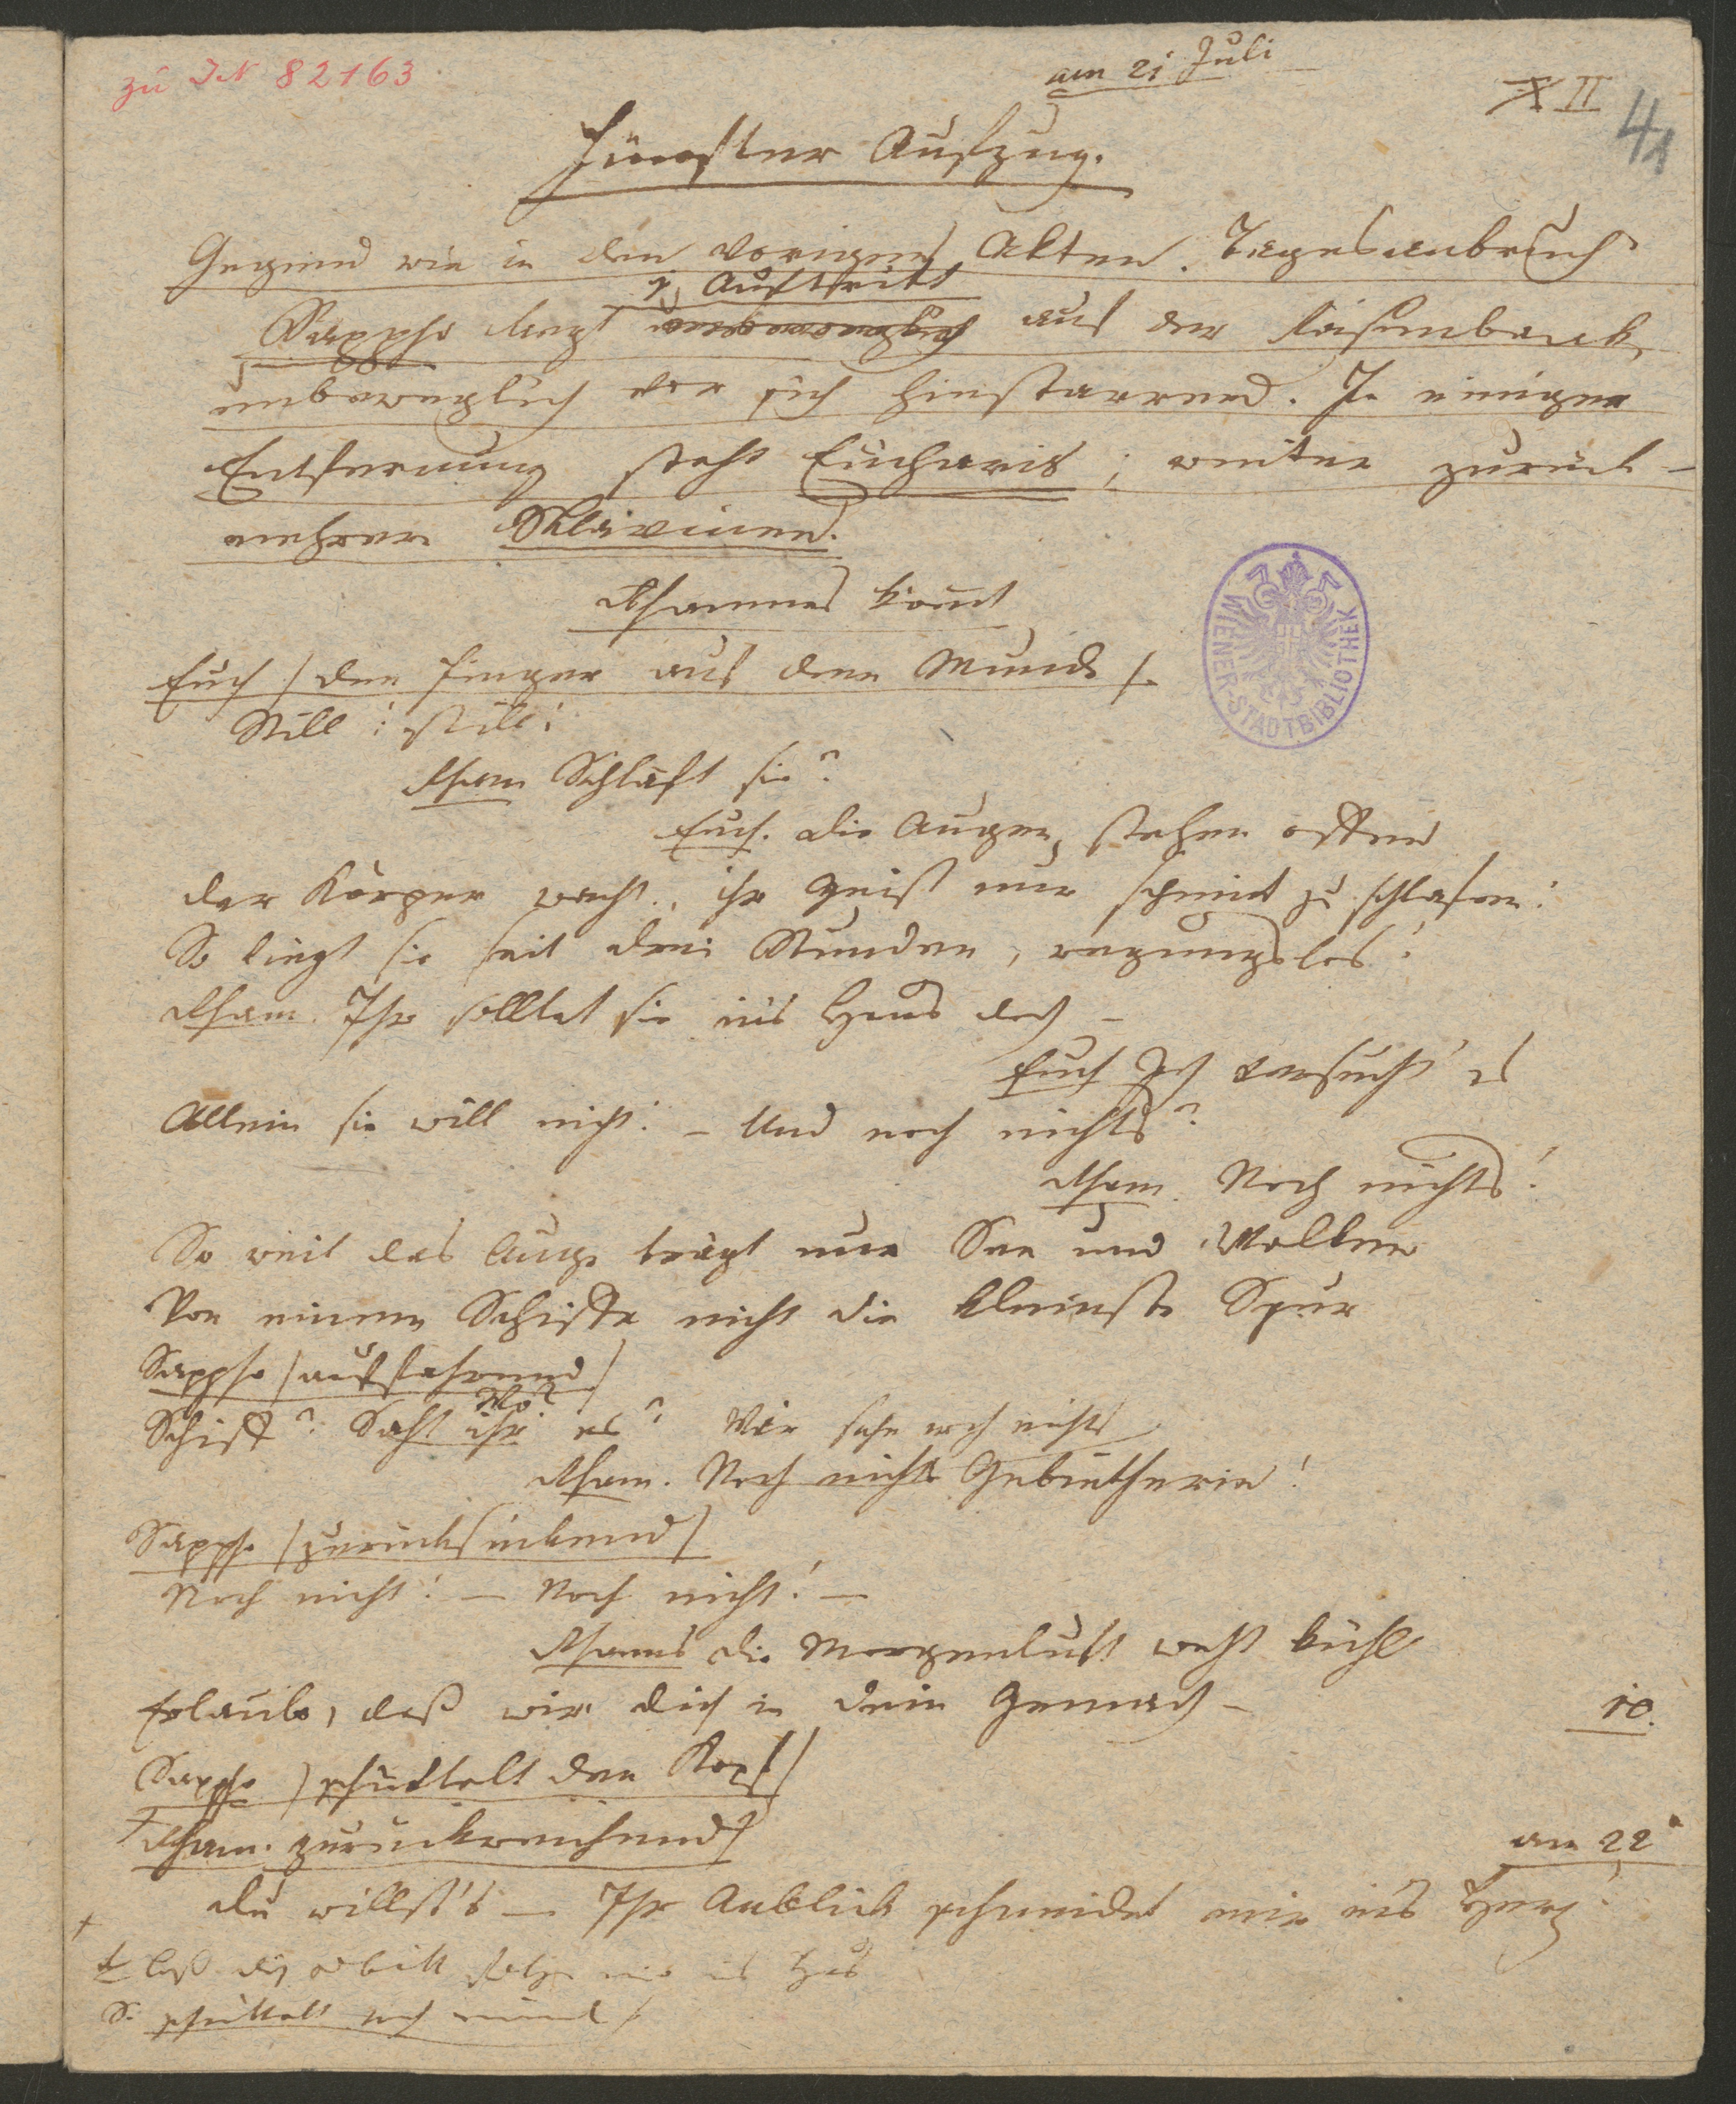 zu IN 82163
am 21 Juli
XII
41
Fünfter Aufzug.
Gegend wie in den vorigen Akten. Tagesanbruch
1. Auftritt
Sappho liegt auf der Rasenbank,
unbeweglich vor sich hinstarrend. In einiger
Entfernung steht Eucharis; weiter zurück
mehrere Sklavinnen.
Rhamnes kommt
Euch / den Finger auf dem Munde /.
Still! still!
Rham Schläft sie?
Euch. Die Augen stehen offen
Der Körper wacht, ihr Geist nur scheint zu schlafen!
So liegt sie seit drei Stunden, regungslos!
Rham. Ihr solltet sie ins Haus doch –
Euch Ich versucht' es
Allein sie will nicht! – Und noch nichts?
Rham. Noch nichts!
So weit das Auge trägt nur See und Wolken
Von einem Schiffe nicht die kleinste Spur
Sappho / auffahrend /
Wo?
Schiff? Saht ihr es? Wir sahn noch nichts
Rham. Noch nichts Gebietherin!
Sappho / zurücksinkend /
Noch nicht! – Noch nicht! –
Rhamns Die Morgenluft weht kühl
Erlaube, daß wir dich in dein Gemach –
10.
Sappho / schüttelt den Kopf /
Rham. zurückweichend /
am 22
Du willst's – Ihr Anblick schneidet mir ins Herz!
+ Laß dich erbitten folge mir ins Haus
S. schüttelt noch einmal /
WIENER STADTBIBLIOTHEK